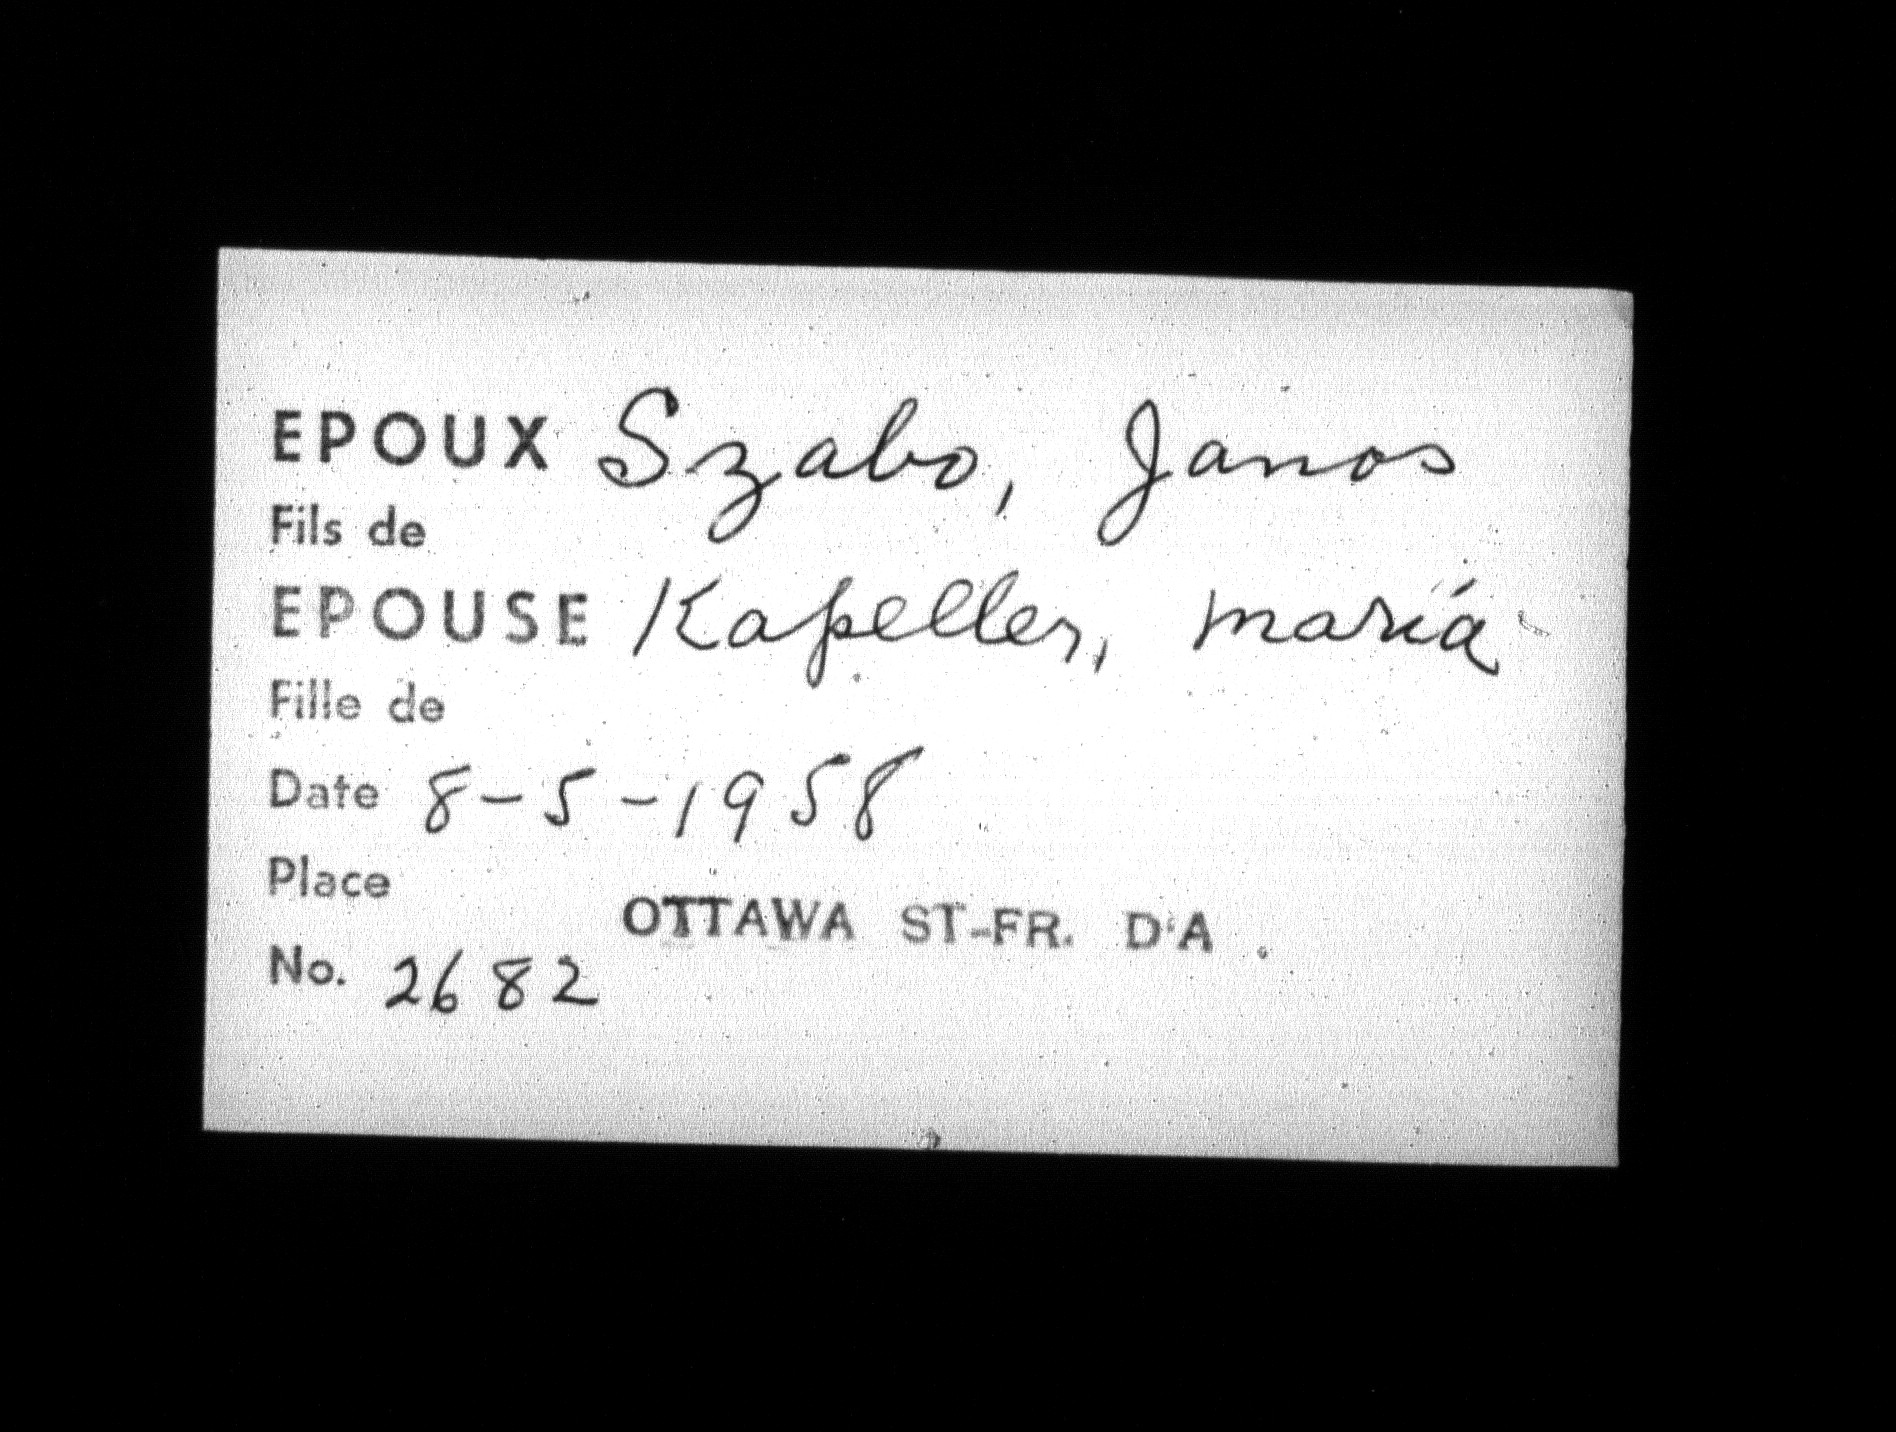 EPOUX Szabo, Janos
Fils de
EPOUSE Kapeller, Maria
Fille de
Date 8-5-1958
Place
OTTAWA ST-FR. D'A.
No. 2682